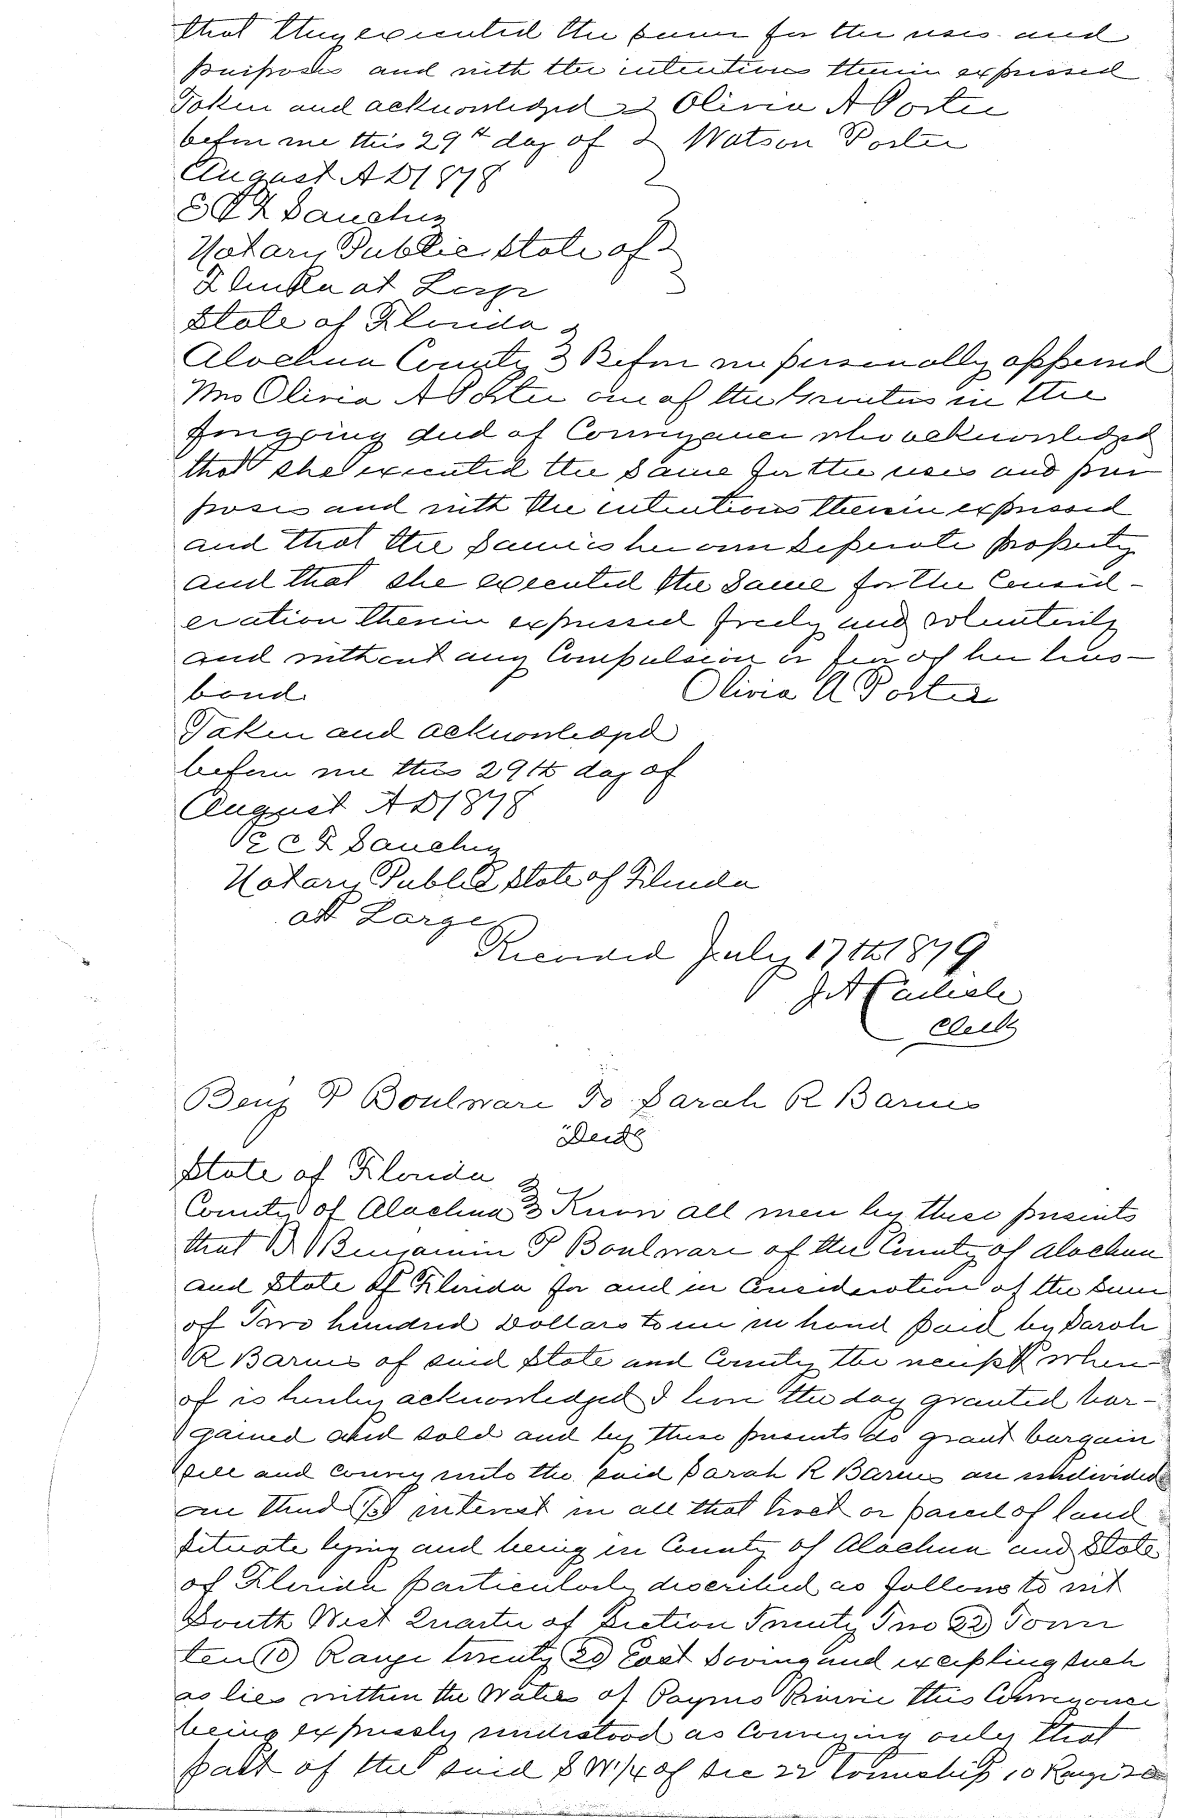 that they executed the same for the uses and
purposes and with the intentions therein expressed
Taken and acknowledged Olivia A Porter
before me this 29th day of Watson Porter
August A D 1878
E C F Sanchez
Notary Public State of
Florida at Large
State of Florida
Alachua County Before me personally appeared
Mrs Olivia A Porter one of the Grantors in the
foregoing deed of Conveyance who acknowledged
that she executed the same for the uses and pur
poses and with the intentions therein expressed
and that the same is her own seperate property
and that she executed the same for the Consid-
eration therein expressed freely and volunterily
and without any Compulsion or fear of her hus-
band. Olivia A Porter
Taken and acknowledged
before me this 29th day of
August A D 1878
E C F Sanchez
Notary Public State of Florida
at Large
Recorded July 17th 1879
J A Carlisle
Clerk
Benj P Boulware To Sarah R Barnes
Deed
State of Florida
County of Alachua Know all men by these presents
that I Benjamin P Boulware of the County of Alachua
and State of Florida for and in Consideration of the Sum
of Two hundred Dollars to me in hand paid by Sarah
R Barnes of said State and County the receipt where
of is hereby acknowledged I have the day granted bar-
gained and sold and by these presents do grant bargain
sell and convey unto the said Sarah R Barnes an undivided
one third (1/3) interest in all that tract or parcel of land
situate lying and being in County of Alachua and State
of Florida particularly described as follows to wit
South West Quarter of Section Twenty Two 22 Town
ten 10 Range twenty 20 East Saving and excepting such
as lies within the Water of Paynes Prairie this Conveyance
being expressly understood as conveying only that
part of the said S W 1/4 of Sec 22 Township 10 Range 20